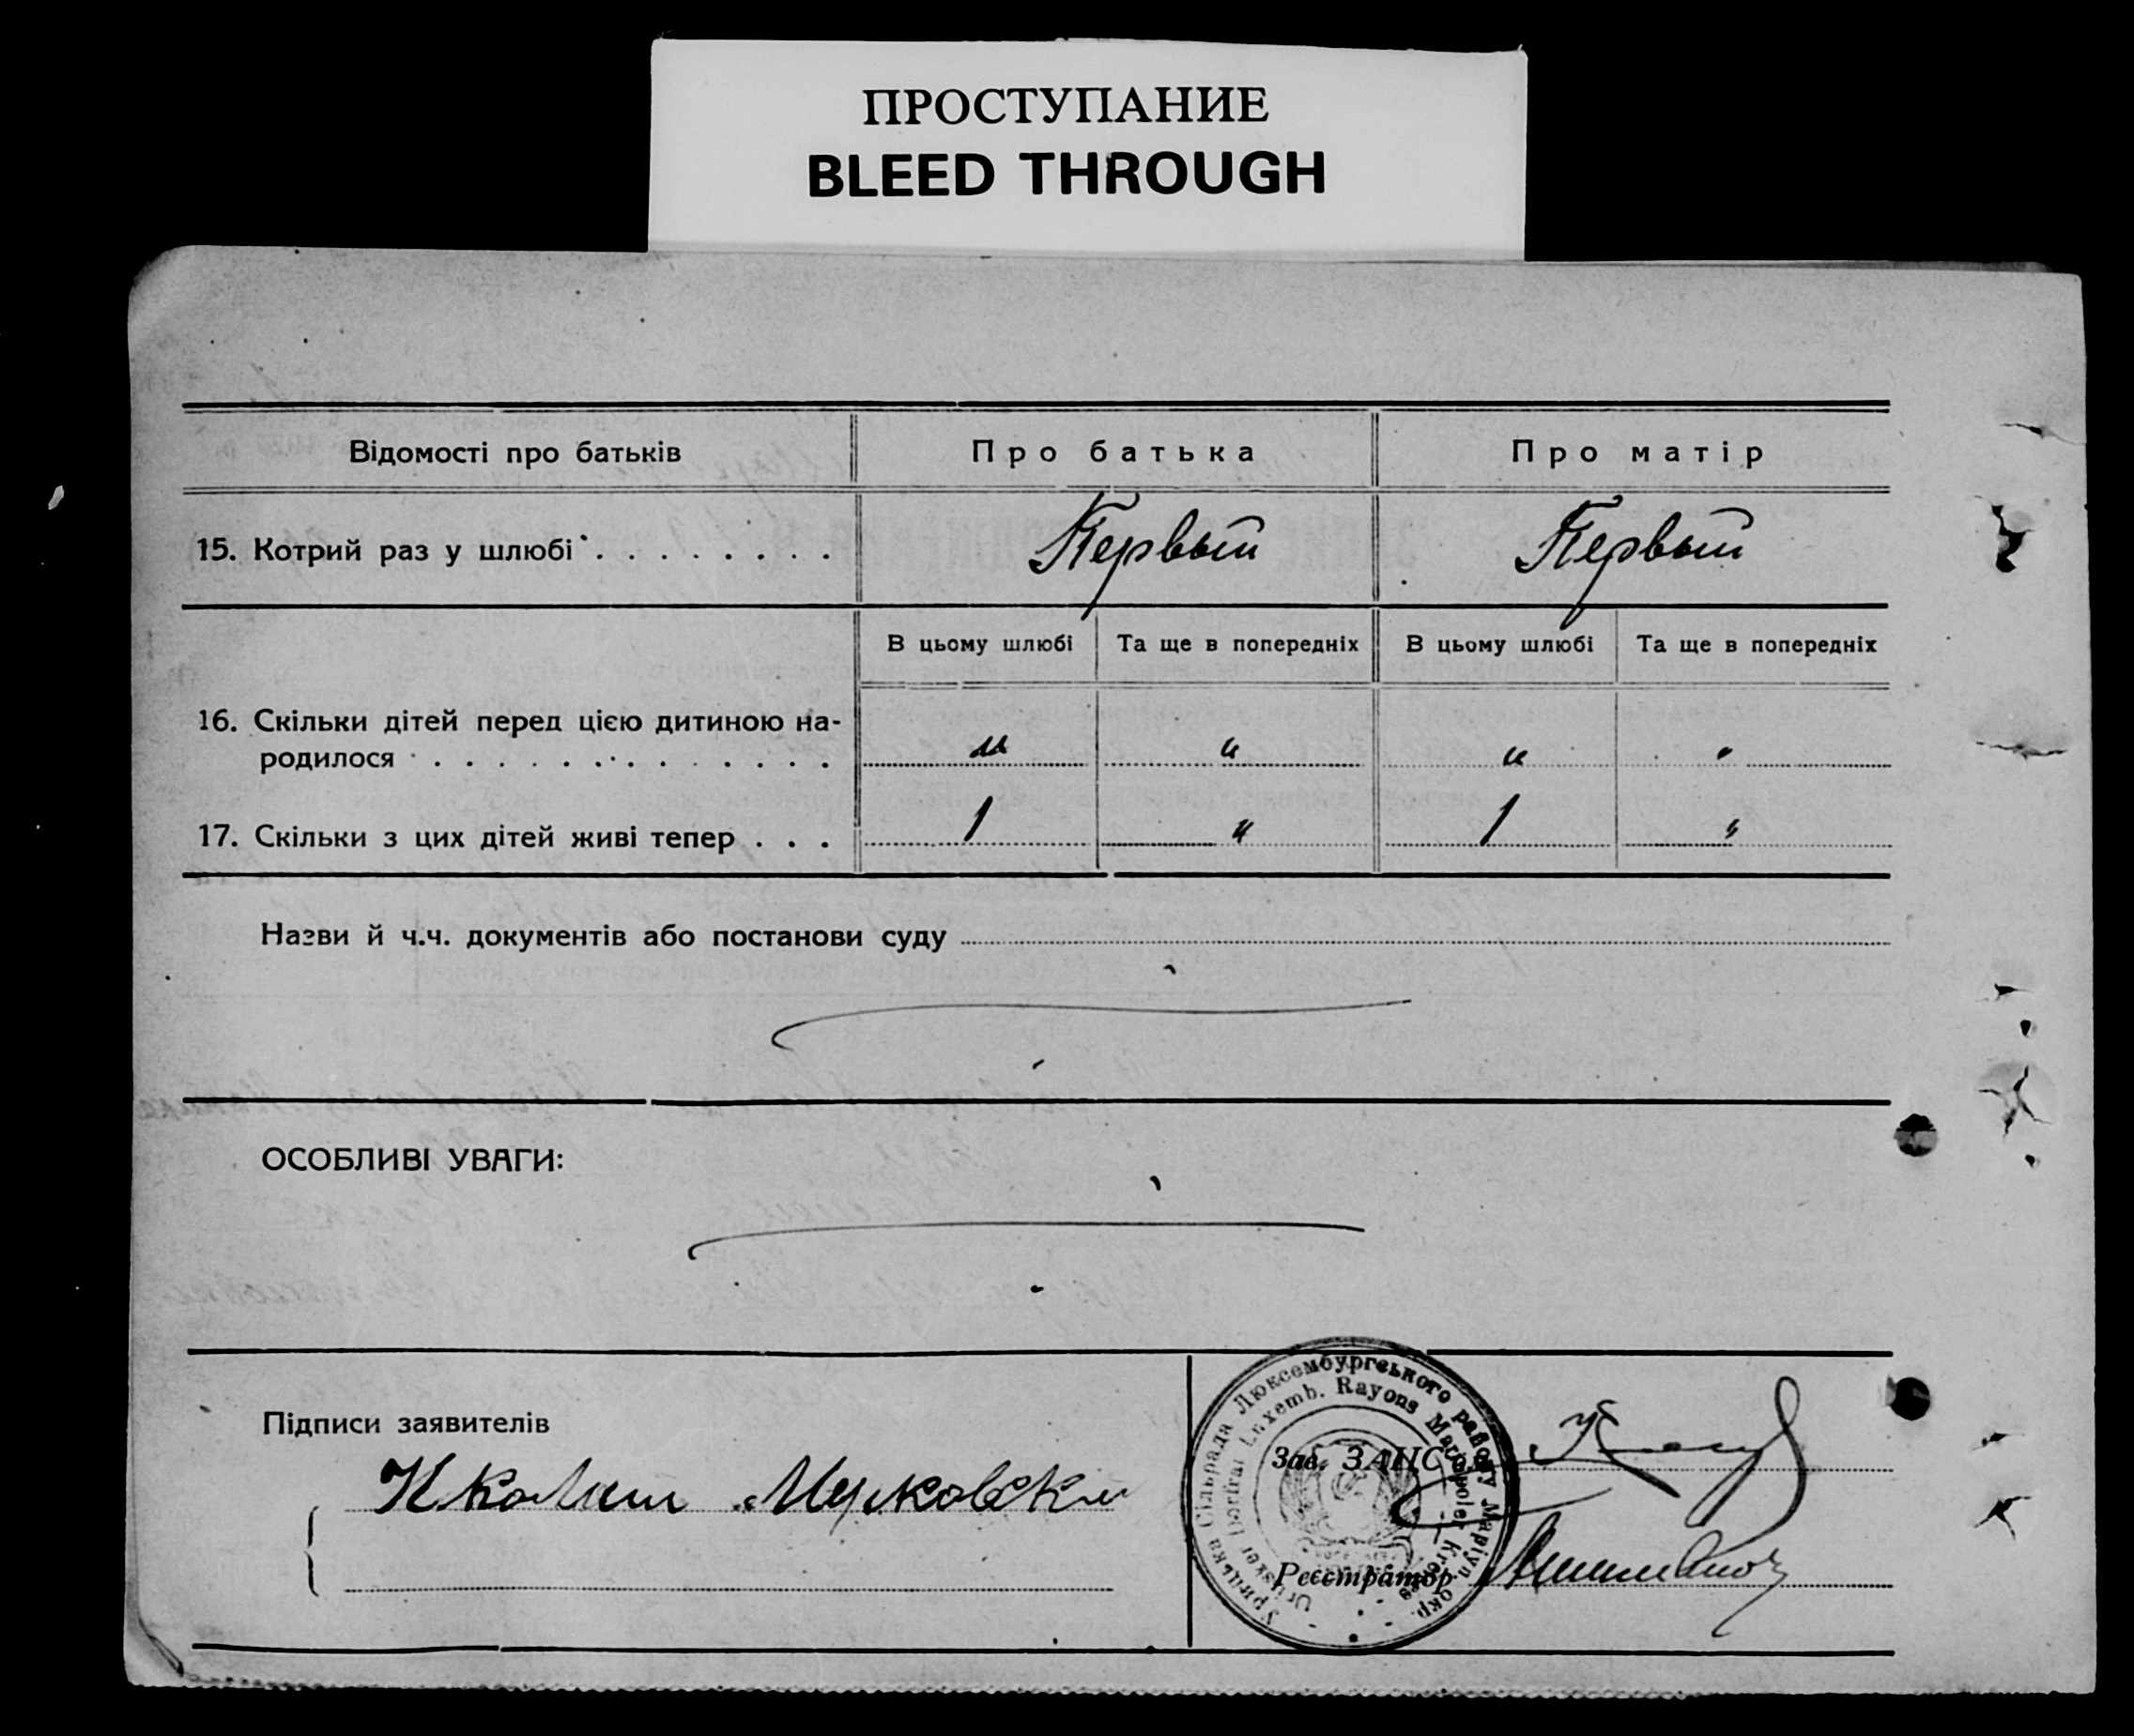 ПРОСТУПАНИЕ
BLEED THROUGH
Відомості про батьків
Про батька
Про матір
15. Котрий раз у шлюбі . . . . . . . .
Первый
Первый
В цьому шлюбі
Та ще в попередніх
В цьому шлюбі
Та ще в попередніх
16. Скільки дітей перед цією дитиною на-
родилося . . . . . . . . . . . . . .
"
"
"
"
17. Скільки з цих дітей живі тепер . . .
1
"
1
"
Назви й ч.ч. документів або постанови суду
ОСОБЛИВІ УВАГИ:
Підписи заявителів
Зав. ЗАНС'ом
Реєстратор
Урицька Сільрада Люксембургського району Маріуп. окр.
Luxemb. Rayons Mariupoler Kreises